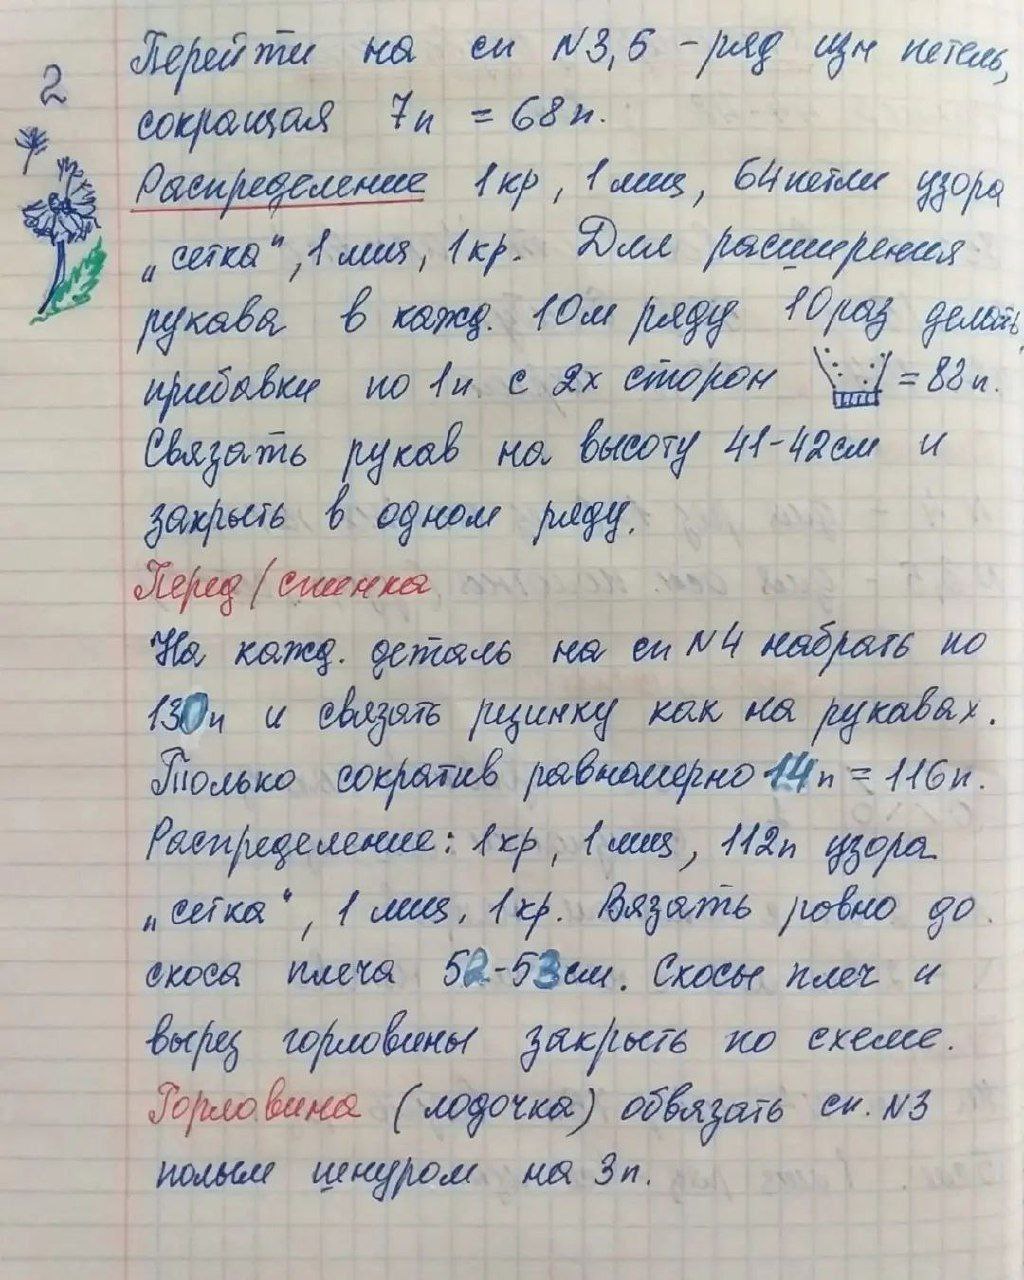 2
Перейти на сп №3,5 - ряд изн петель,
сокращая 7п = 68п.
Распределение 1кр, 1 лиц, 64петли узора
„сетка", 1 лиц, 1кр. Для расширения
рукава в кажд. 10м ряду 10раз делать
прибавки по 1п с 2х сторон = 88п.
Связать рукав на высоту 41-42см и
закрыть в одном ряду.
Перед/спинка
На кажд. деталь на сп №4 набрать по
130п и связать резинку как на рукавах.
Только сократив равномерно 14п = 116п.
Распределение: 1кр, 1 лиц, 112п узора
„сетка", 1 лиц, 1кр. Вязать ровно до
скоса плеча 52-53см. Скосы плеч и
вырез горловины закрыть по схеме.
Горловина (лодочка) обвязать сп. №3
полым шнуром на 3п.